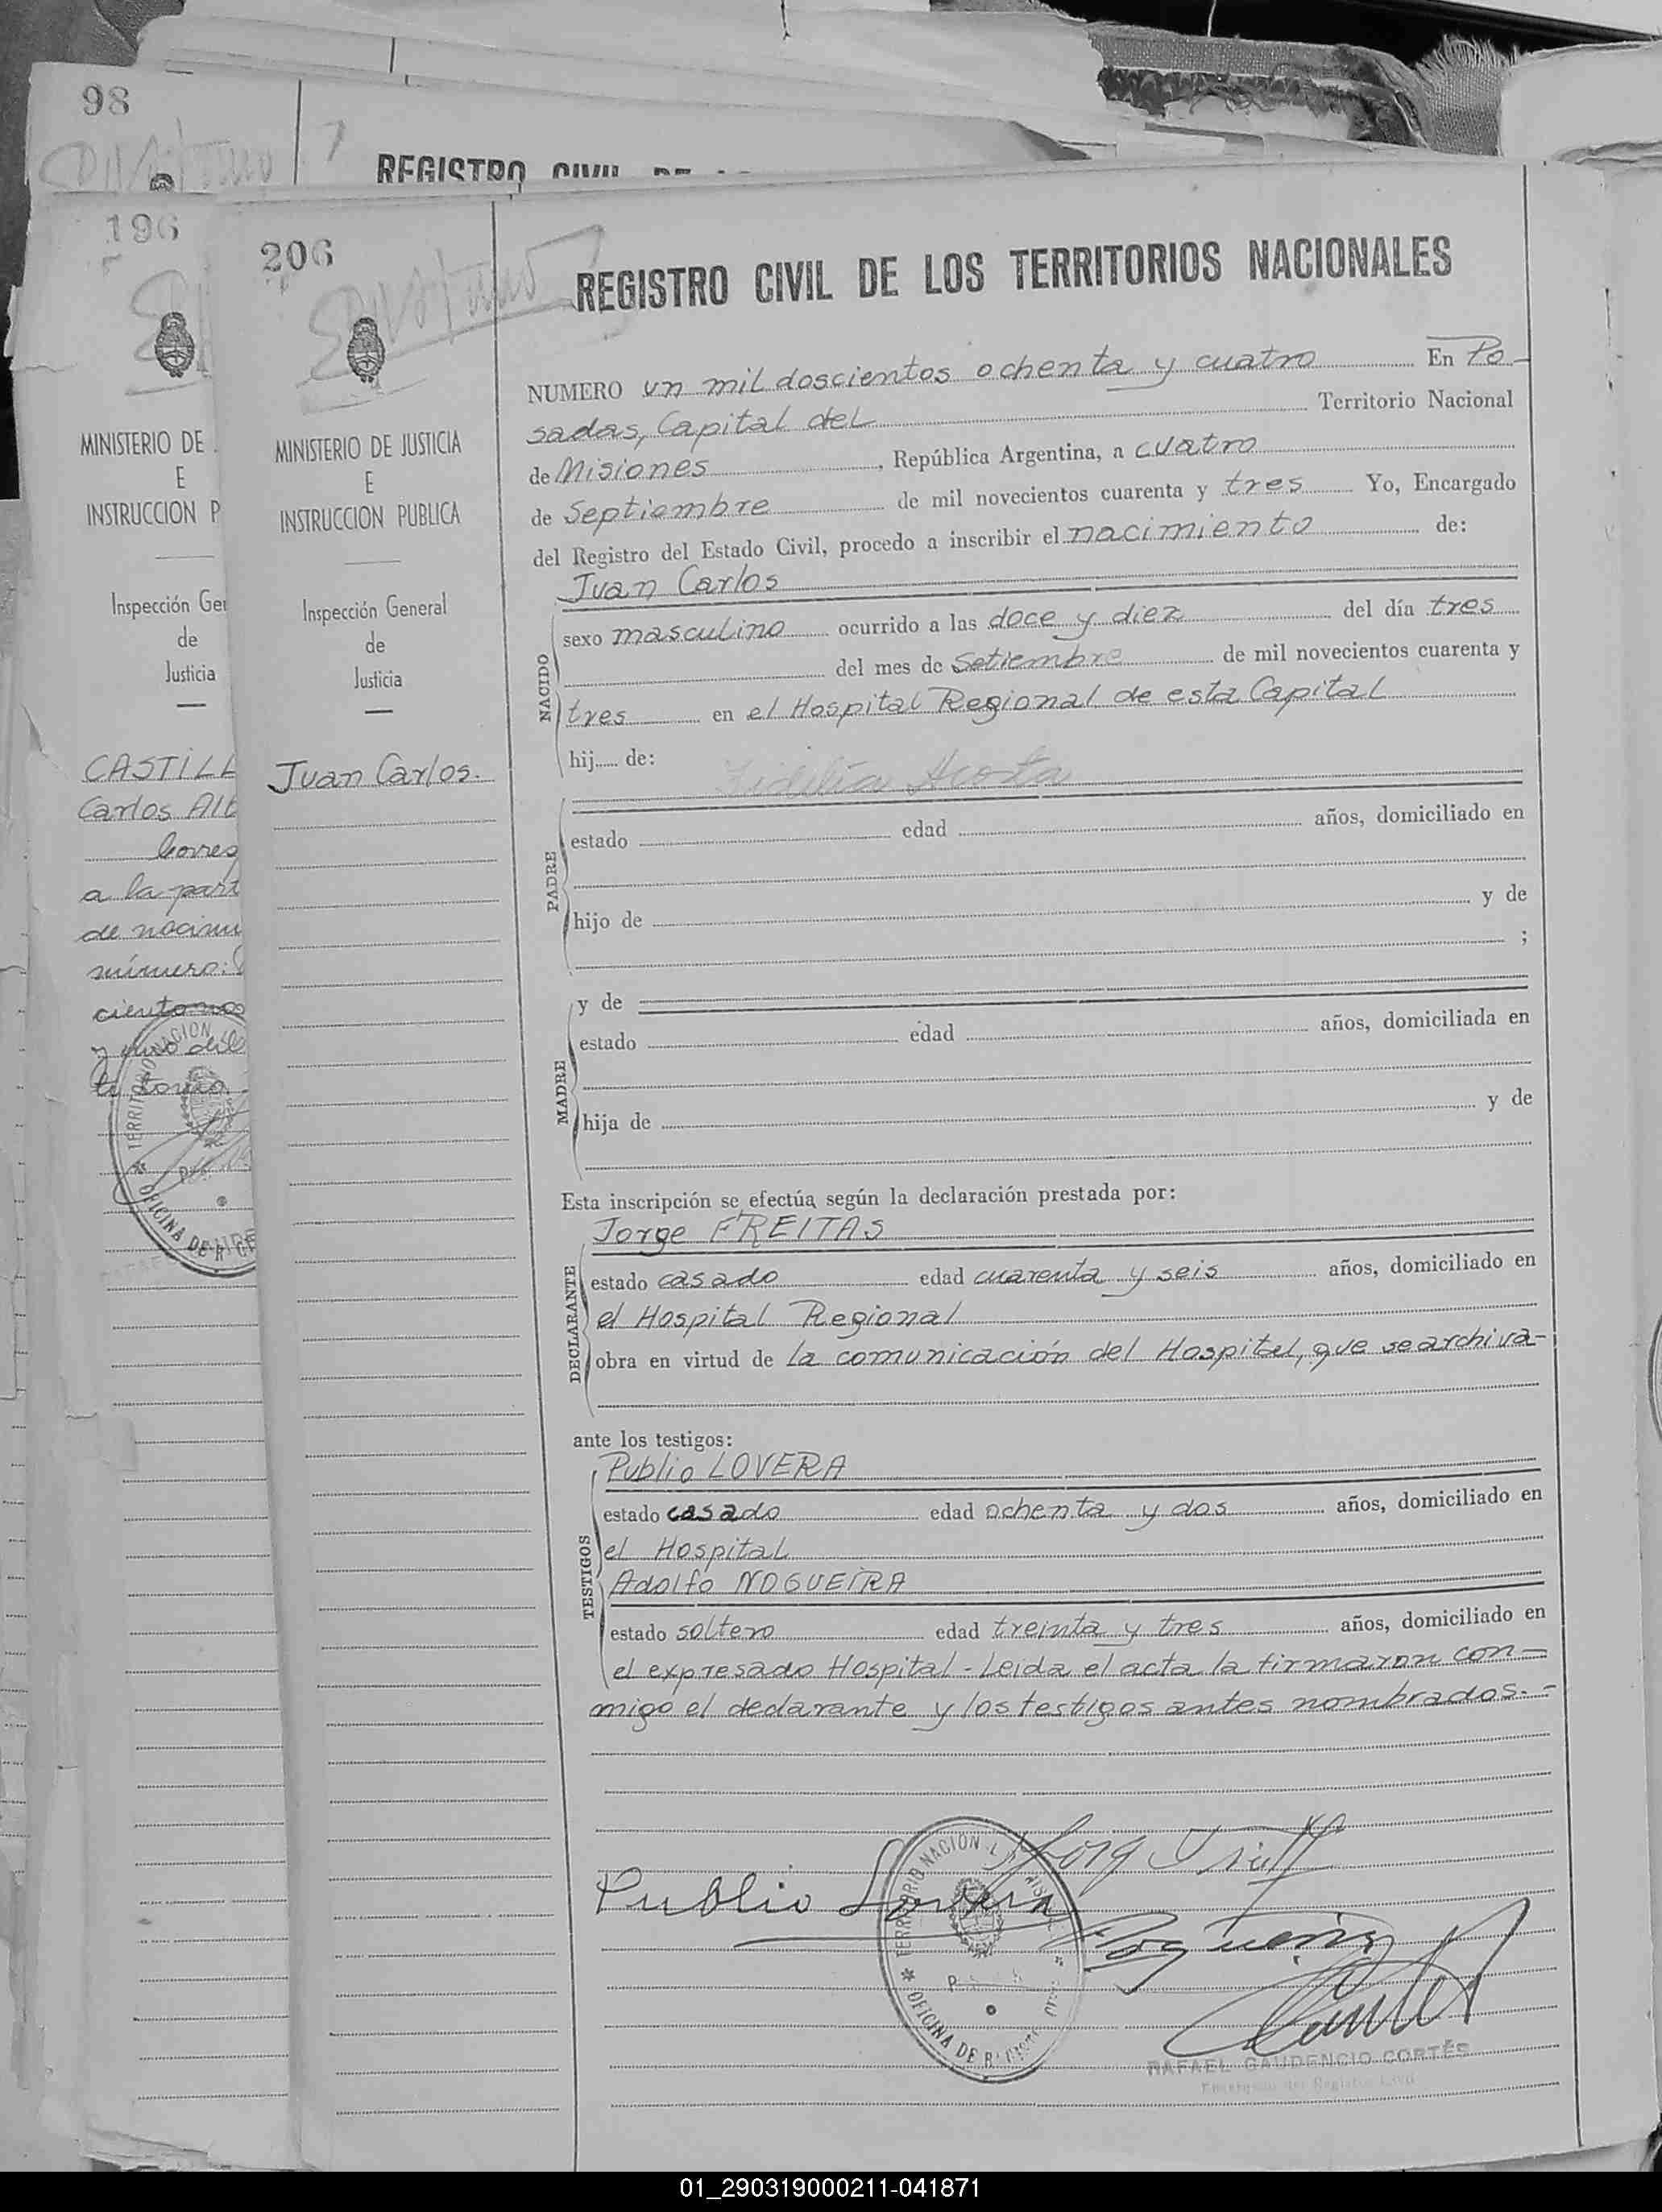 98
REGISTRO CIVIL DE
196
MINISTERIO DE
E
INSTRUCCION P
Inspección Ge
de
Justicia
CASTILL
Carlos Alb
Corres
a la part
de nacimi
número:
ciento
y uno del
tomo
206
MINISTERIO DE JUSTICIA
E
INSTRUCCION PUBLICA
Inspección General
de
Justicia
Juan Carlos.
REGISTRO CIVIL DE LOS TERRITORIOS NACIONALES
NUMERO un mil doscientos ochenta y cuatro En Po-
sadas, Capital del Territorio Nacional
de Misiones, República Argentina, a cuatro
de Septiembre de mil novecientos cuarenta y tres Yo, Encargado
del Registro del Estado Civil, procedo a inscribir el nacimiento de:
Juan Carlos
NACIDO
sexo masculino ocurrido a las doce y diez del día tres
del mes de Setiembre de mil novecientos cuarenta y
tres en el Hospital Regional de esta Capital
hij..... de:
Fidelia Acosta
PADRE
estado edad años, domiciliado en
hijo de y de
;
MADRE
y de
estado edad años, domiciliada en
hija de y de
Esta inscripción se efectúa según la declaración prestada por:
Jorge FREITAS
DECLARANTE
estado casado edad cuarenta y seis años, domiciliado en
el Hospital Regional
obra en virtud de la comunicación del Hospital, que se archiva-
ante los testigos:
Publio LOVERA
TESTIGOS
estado casado edad ochenta y dos años, domiciliado en
el Hospital
Adolfo NOGUEIRA
estado soltero edad treinta y tres años, domiciliado en
el expresado Hospital - Leida el acta la firmaron con-
migo el declarante y los testigos antes nombrados.-
Publio Lovera
Nogueira
RAFAEL GAUDENCIO CORTÉS
Encargado del Registro Civil
01_290319000211-041871